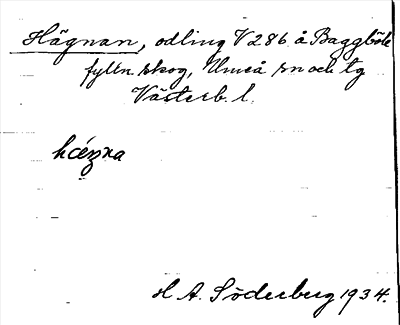 Hägnan, odling V286 å Baggböle
fylln skog, Umeå sn och tg
Västerb. l.
hägna
H A. Söderberg 1934.